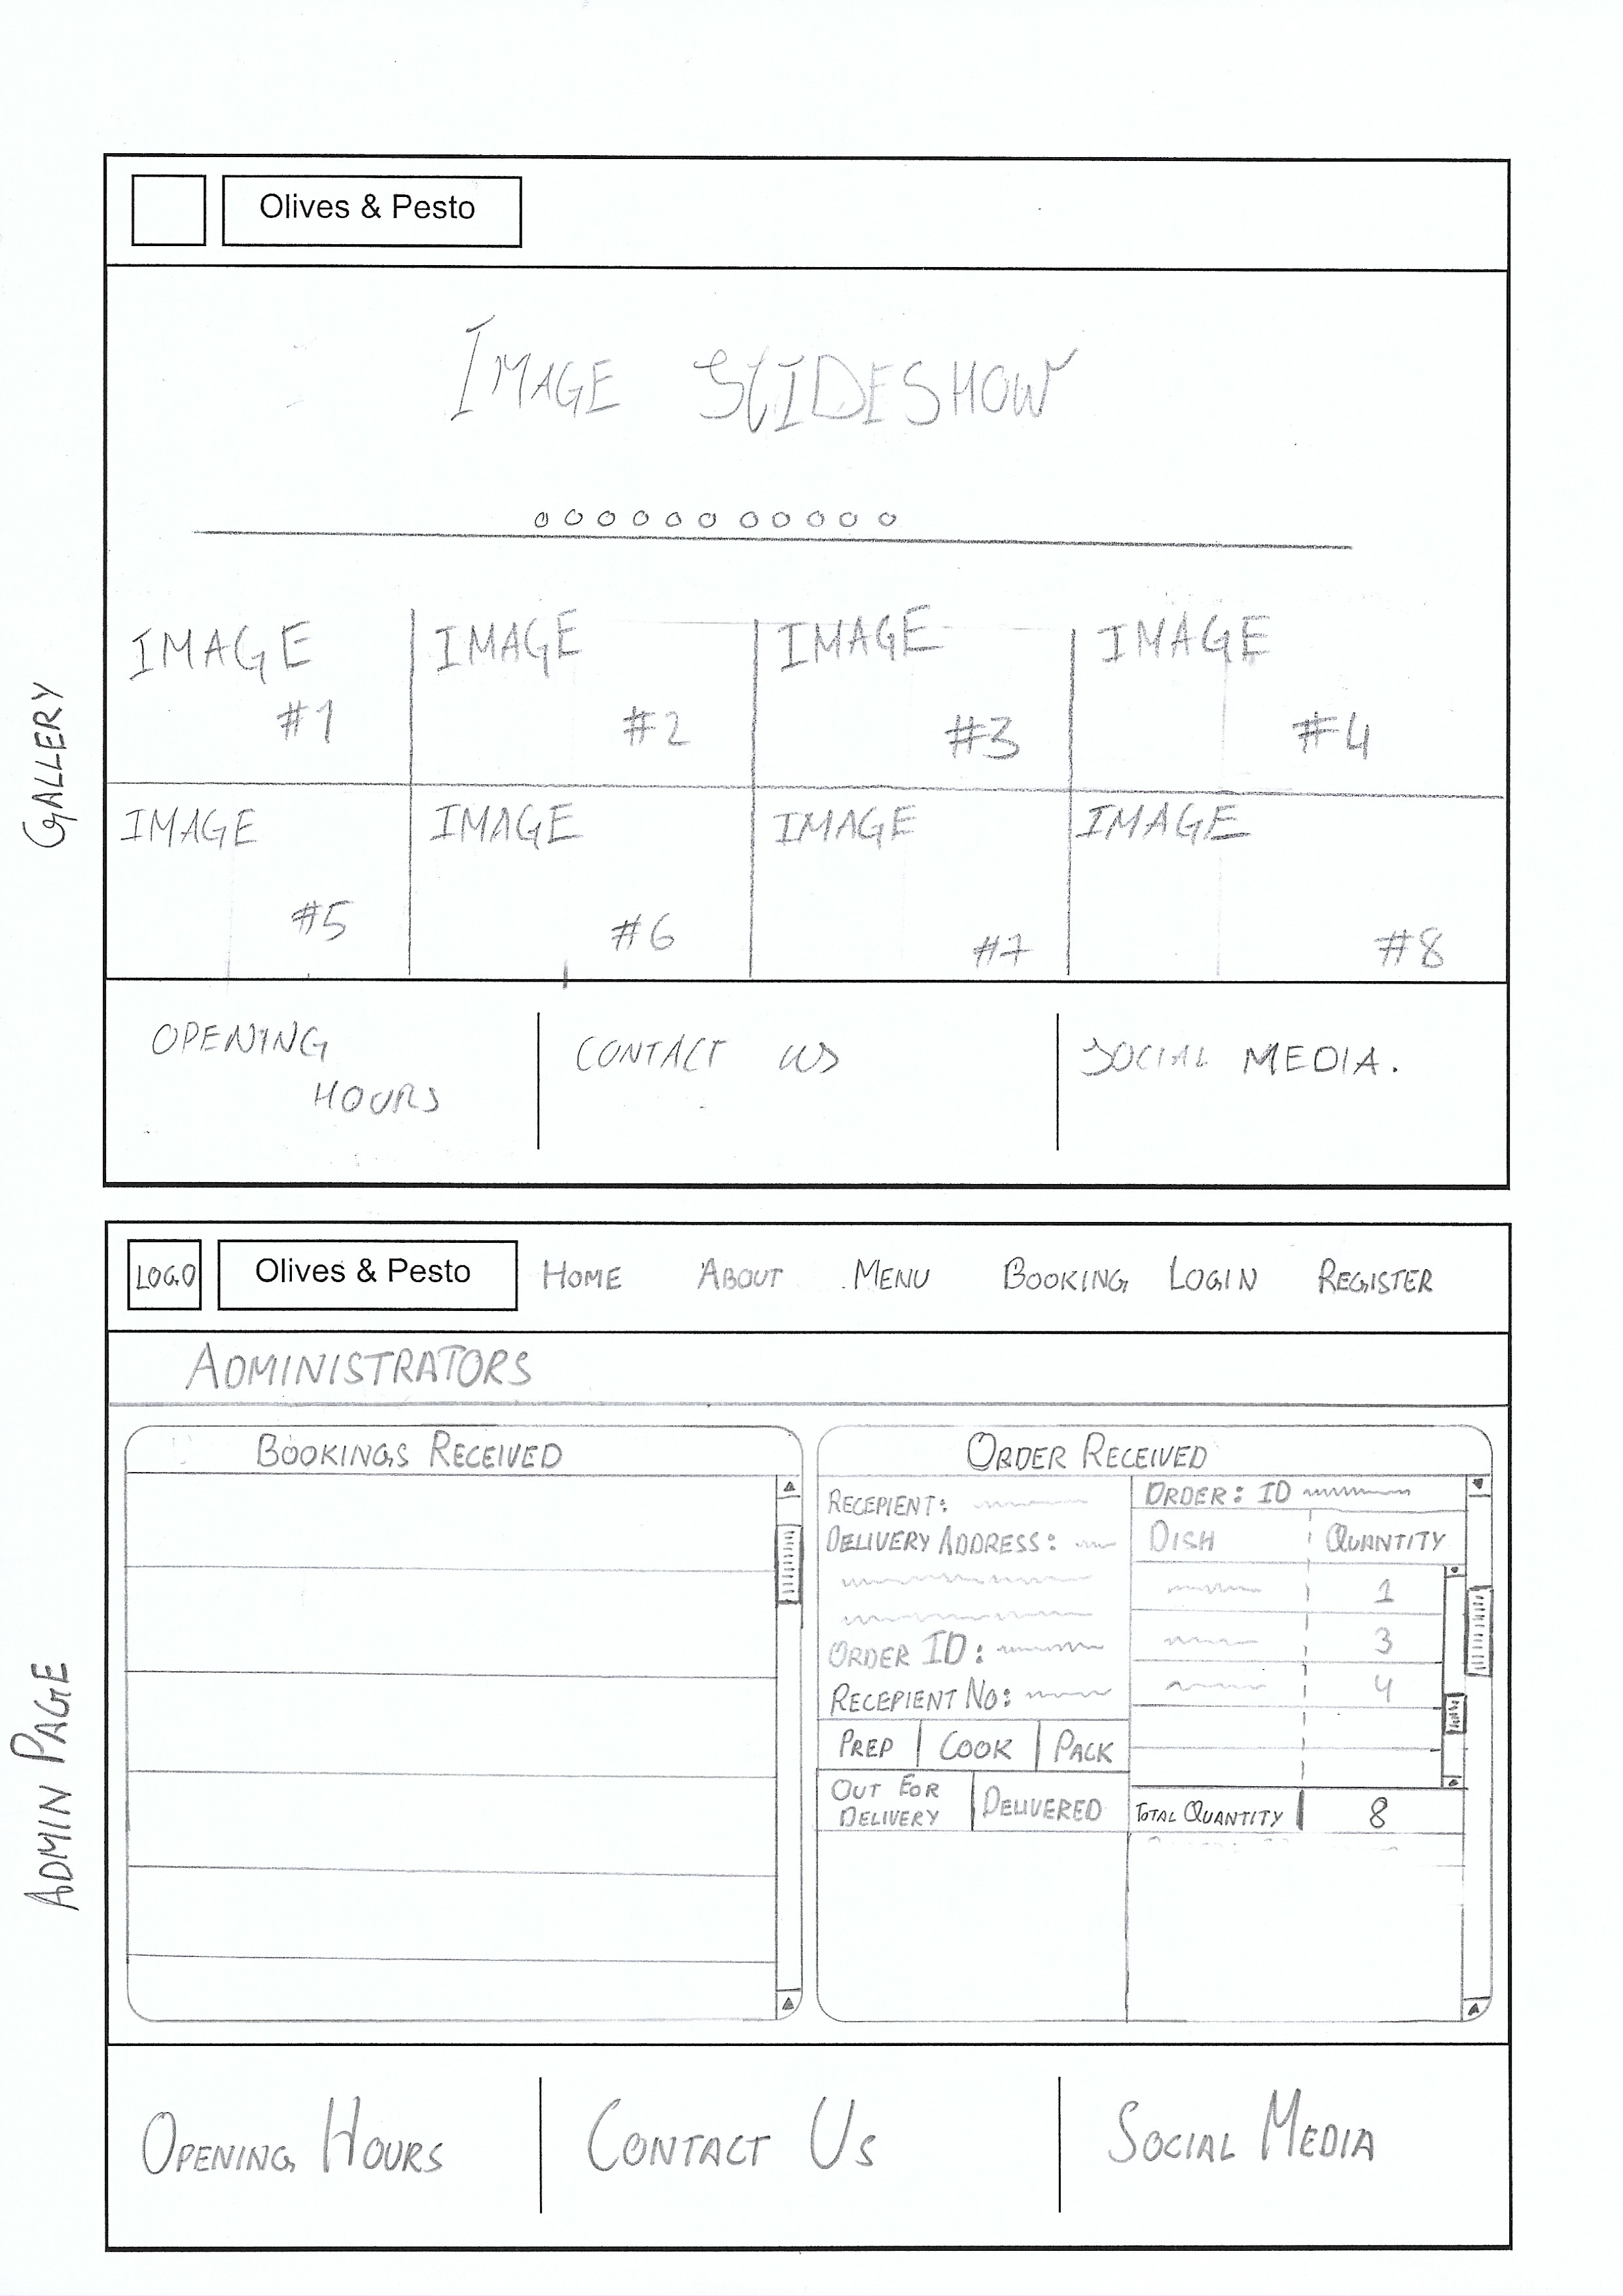 GALLERY
Olives & Pesto
IMAGE SLIDESHOW
IMAGE IMAGE IMAGE IMAGE
#1 #2 #3 #4
IMAGE IMAGE IMAGE IMAGE
#5 #6 #7 #8
OPENING HOURS
CONTACT US
SOCIAL MEDIA.
ADMIN PAGE
LOGO Olives & Pesto HOME ABOUT MENU BOOKING LOGIN REGISTER
ADMINISTRATORS
BOOKINGS RECEIVED
ORDER RECEIVED
RECEPIENT:
DELIVERY ADDRESS:
ORDER ID:
RECEPIENT NO:
PREP COOK PACK
OUT FOR DELIVERY DELIVERED
ORDER: ID
DISH QUANTITY
1
3
4
TOTAL QUANTITY 8
OPENING HOURS
CONTACT US
SOCIAL MEDIA